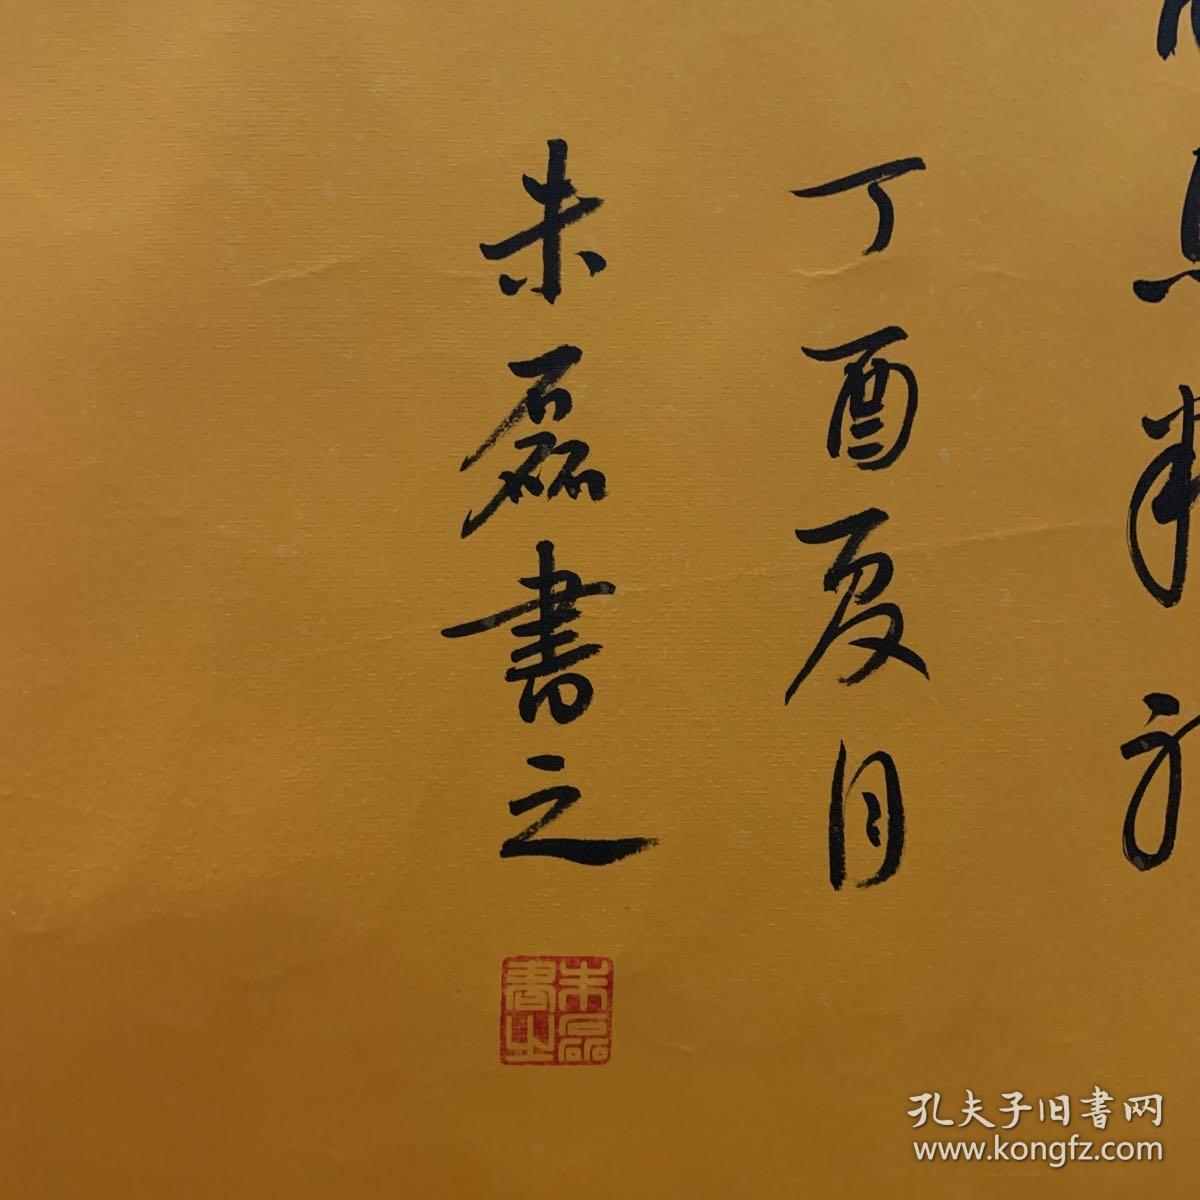 馬精神
丁酉夏月
朱磊書之
朱磊書之
孔夫子旧書网
www.kongfz.com